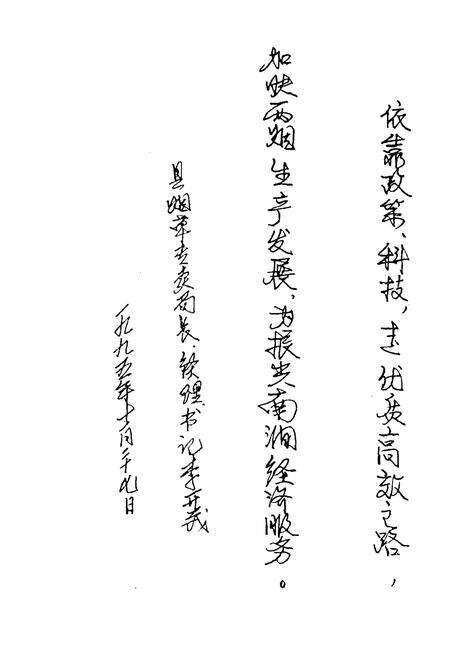 依靠政策、科技，走优质高效之路，
加快两烟生产发展，为振兴南涧经济服务。
县烟草专卖局长、经理书记李开武
一九九五年十月二十九日